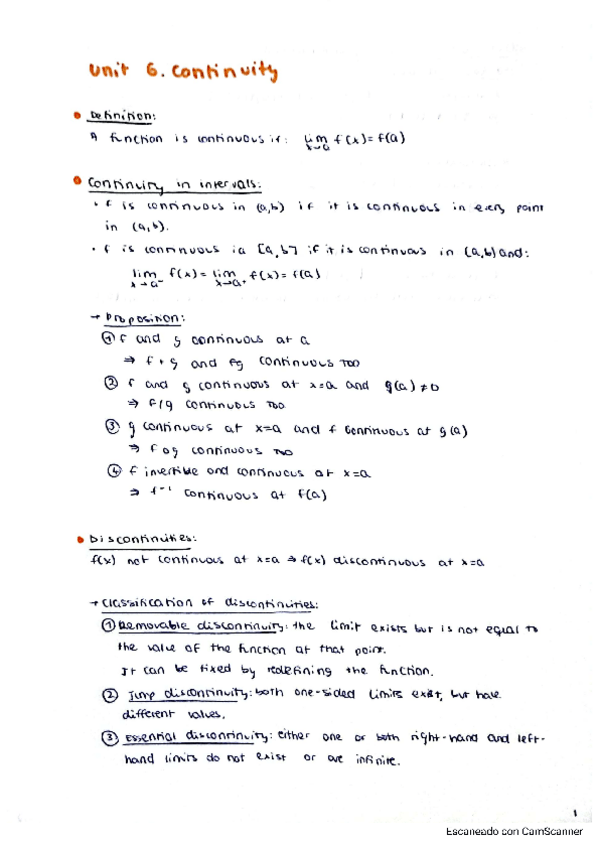 Unit 6. Continuity
Definition:
A function is continuous if: lim x→a f(x) = f(a)
Continuity in intervals:
· f is continuous in (a,b) if it is continuous in every point
in (a,b).
· f is continuous in [a,b] if it is continuous in (a,b) and:
lim x→a⁻ f(x) = lim x→a⁺ f(x) = f(a)
→ Proposition:
① f and g continuous at a
⇒ f + g and fg continuous too
② f and g continuous at x=a and g(a) ≠ 0
⇒ f/g continuous too
③ g continuous at x=a and f continuous at g(a)
⇒ f o g continuous too
④ f invertible and continuous at x=a
⇒ f⁻¹ continuous at f(a)
Discontinuities:
f(x) not continuous at x=a ⇒ f(x) discontinuous at x=a
→ Classification of discontinuities:
① Removable discontinuity: the limit exists but is not equal to
the value of the function at that point.
It can be fixed by redefining the function.
② Jump discontinuity: both one-sided limits exist, but have
different values.
③ Essential discontinuity: either one or both right-hand and left-
hand limits do not exist or are infinite.
1
Escaneado con CamScanner